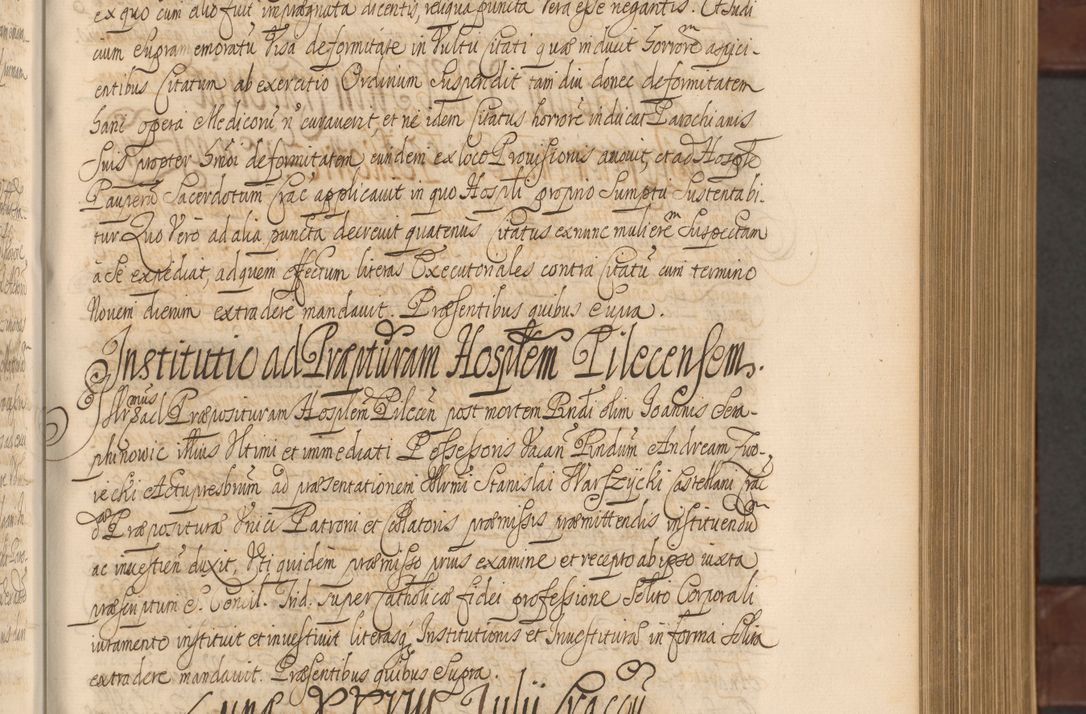 ex quo cum alio fuit impragnata dicentis, reliqua puncta Vera esse negantis. Et Judi
cium eius memoratu Visa deformitate in Vultu Citati quæ induit horrorẽ aspici-
entibus Citatum ab exercitio Ordinum Suspendit tam diu donec deformitatem
hanc opera Medicorũ ñ curaverit, et ne idem Citatus horrorẽ inducat Parochianis
Suis propter hmõi deformitatem eundem ex loco Provisionis amovit, et ad Hospłe
Pauperũ Sacerdotum Crac applicavit in quo Hospłi proprio Sumptu Sustentabi-
tur Quo Vero ad alia puncta decrevit quatenus Citatus ex nunc muliere Suspectam
à Se expediat, ad quem effectum literas Executoriales contra Citatũ cum termino
Novem dierum extradere mandavit. Præsentibus quibus Supra.
Institutio ad Præpturam Hosplem Pilecensem.
Præposituram Hosplem Pilecen post mortem Pindi olim Joannis Sera-
phinowic illius Ultimi et immediati Possessoris Vacan Pindum Andream
ad præsentationem Illrmi Stanislai Warszycki Castellani Crac
d Præpositura Unici Patroni et Collatoris præmissis præmittendis instituendũ
ac investien duxit, Uti quidem præmisso prius examine et recepto ab ipso iuxta
præscriptum S. Concil. Trid. super Catholicæ fidei professione Solito Corporali
iuramento instituit et investivit literasq Institutionis et Investituræ in forma Solita
extradere mandavit. Præsentibus quibus Supra.
Julii Cracov